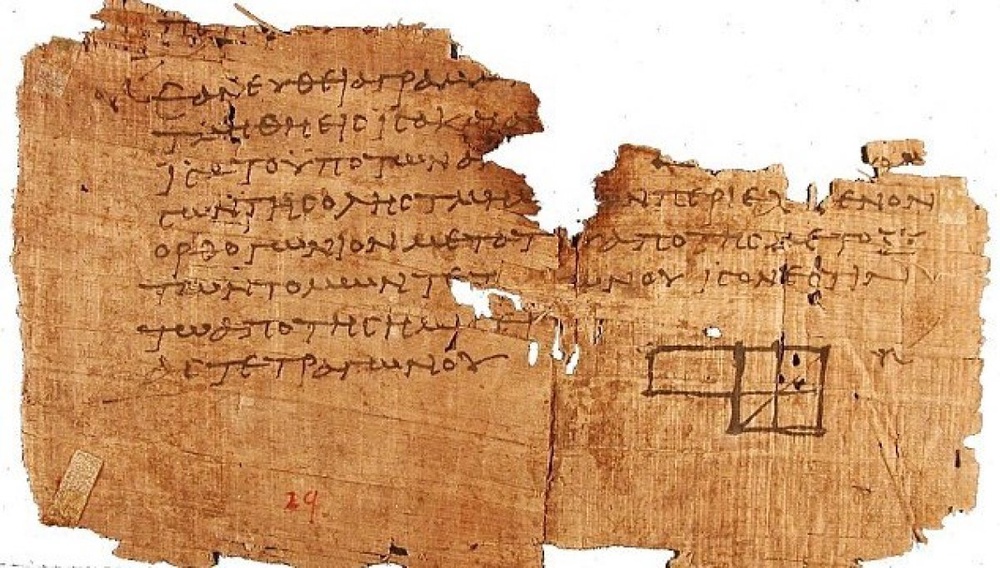 ΕΑΝΕΥΘΕΙΑΓΡΑΜΜ
ΤΜΗΘΗΕΙϹΙϹΑΚΑΙΑ
ΙϹΑΤΟΥΠΟΤΩΝΑ
ϹΩΝΤΗϹΟΛΗϹΤΜΗΜ ΝΠΕΡΙΕΧ ΜΕΝΟΝ
ΟΡΘΟΓΩΝΙΟΝΜΕΤΟΤ ΑΠΟΤΗϹΜΕΤΟΞΥ
ΤΩΝΤΟΜΩΝΤΕΤ ΩΝΟΥΙϹΟΝΕϹΤΙΝ
ΤΩΑΠΟΤΗϹΗΜΙϹΕΙ
ΑϹΤΕΤΡΑΓΩΝΟΥ
29.